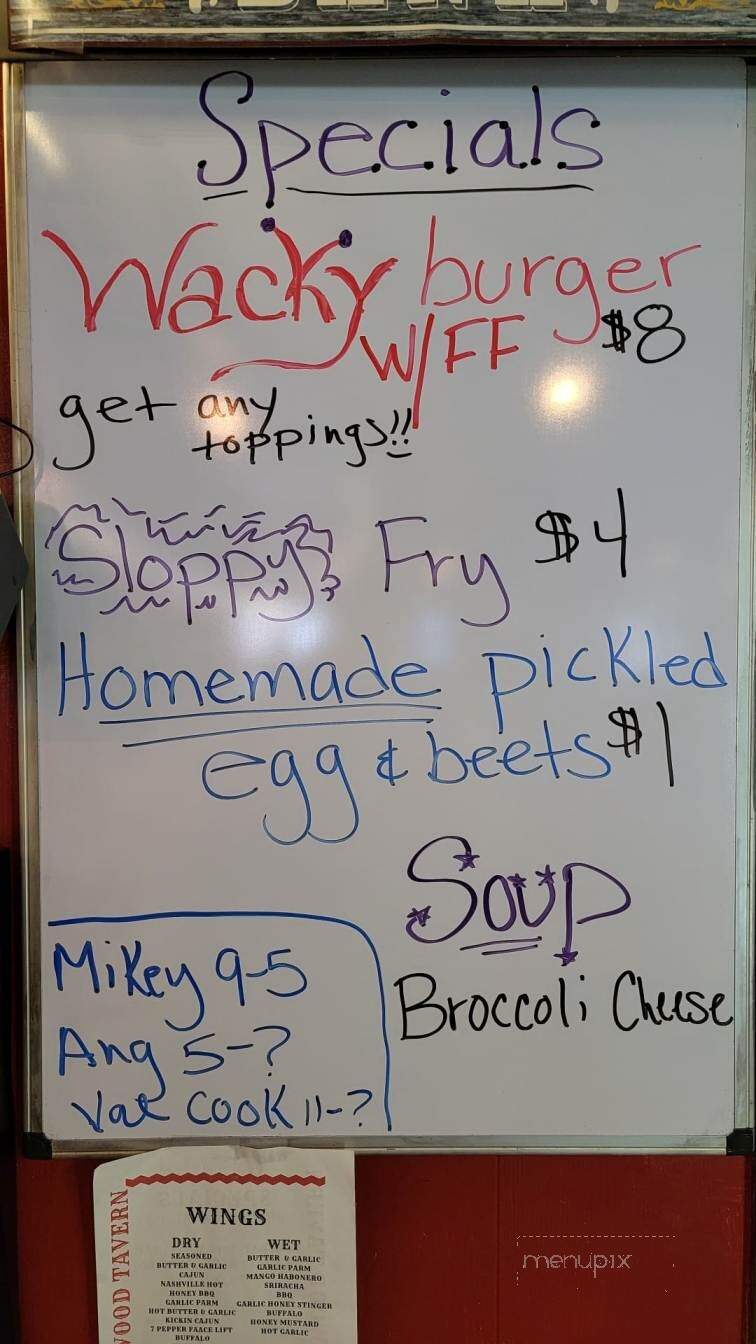 Specials
Wacky burger
W/FF $8
get any
toppings!!
Sloppy Fry $4
Homemade pickled
egg & beets $1
Soup
Broccoli Cheese
Mikey 9-5
Ang 5-?
Val cook 11-?
WOOD TAVERN
WINGS
DRY
SEASONED
BUTTER & GARLIC
CAJUN
NASHVILLE HOT
HONEY BBQ
GARLIC PARM
HOT BUTTER & GARLIC
KICKIN CAJUN
7 PEPPER FAACE LIFT
BUFFALO
WET
BUTTER & GARLIC
GARLIC PARM
MANGO HABONERO
SRIRACHA
BBQ
GARLIC HONEY STINGER
BUFFALO
HONEY MUSTARD
HOT GARLIC
menupix